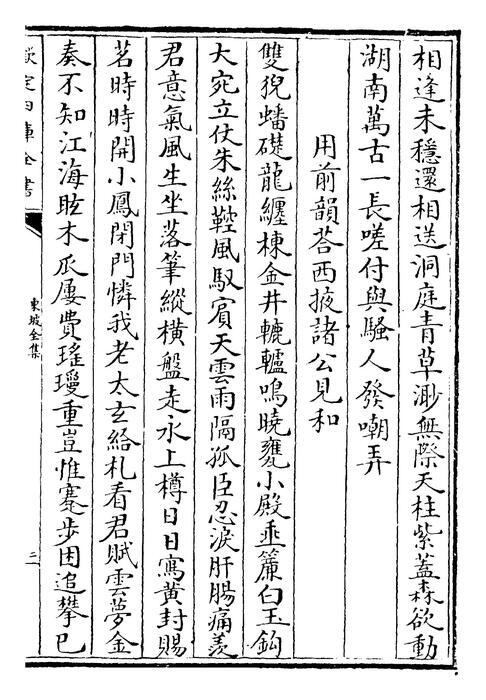 相逢未穩還相送洞庭青草渺無際天柱紫蓋森欲動
湖南萬古一長嗟付與騷人發嘲弄
用前韻荅西掖諸公見和
雙猊蟠礎龍纏棟金井轆轤鳴曉甕小殿垂簾白玉鈎
大宛立仗朱絲鞚風馭賓天雲雨隔孤臣忍淚肝腸痛羨
君意氣風生坐落筆縱横盤走汞上樽日日寫黄封賜
茗時時開小鳳閉門憐我老太玄給札看君賦雲夢金
奏不知江海眩木瓜屢費瑤瓊重豈惟蹇步困追攀已
欽定四庫全書
東坡全集
三